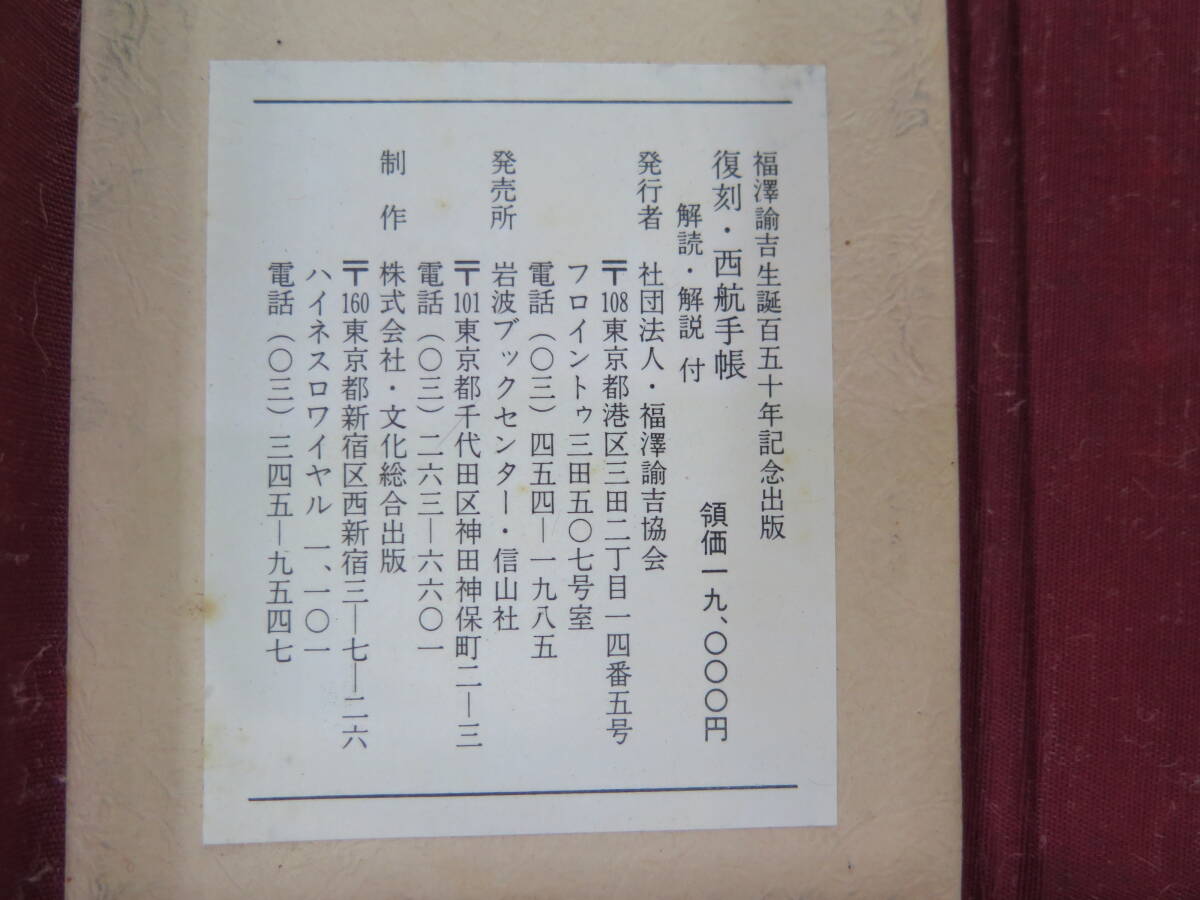 福澤諭吉生誕百五十年記念出版
復刻・西航手帳
解読・解説 付
領価一九、〇〇〇円
発行者 社団法人・福澤諭吉協会
〒108東京都港区三田二丁目一四番五号
フロイントゥ三田五〇七号室
電話(〇三)四五四―一九八五
発売所 岩波ブックセンター・信山社
〒101東京都千代田区神田神保町二―三
電話(〇三)二六三―六六〇一
制作 株式会社・文化総合出版
〒160東京都新宿区西新宿三―七―二六
ハイネスロワイヤル 一、一〇一
電話(〇三)三四五―九五四七